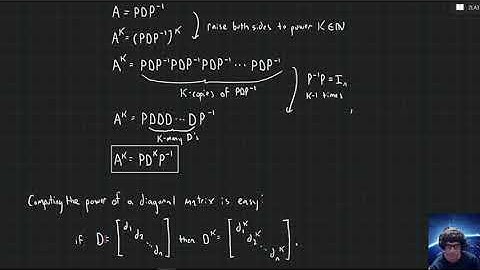 2LA3
A = PDP⁻¹
raise both sides to power K ∈ ℕ
Aᴷ = (PDP⁻¹)ᴷ
Aᴷ = PDP⁻¹PDP⁻¹PDP⁻¹ ··· PDP⁻¹
K-copies of PDP⁻¹
P⁻¹P = Iₙ
K-1 times
Aᴷ = PDDD ··· DP⁻¹
K-many D's
Aᴷ = PDᴷP⁻¹
Computing the power of a diagonal matrix is easy:
if D = [d₁ d₂ ⋱ dₙ] then Dᴷ = [d₁ᴷ d₂ᴷ ⋱ dₙᴷ].